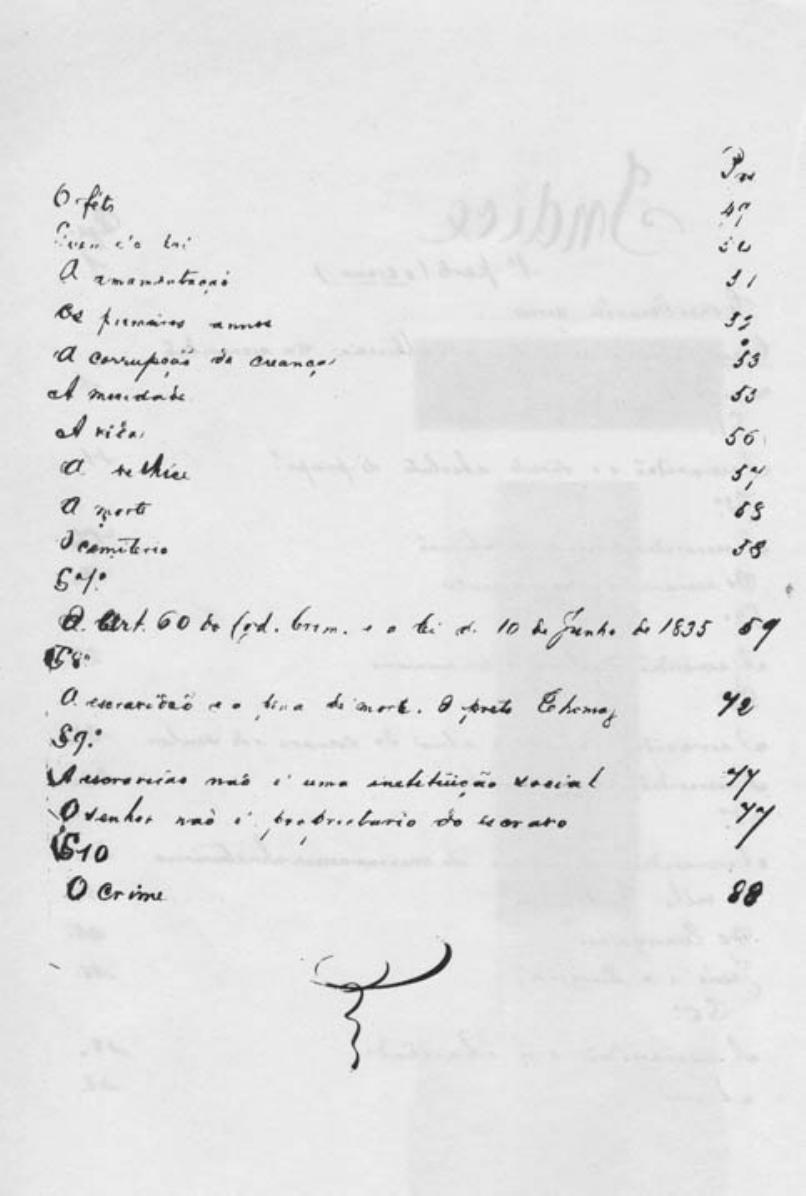 Pag
O feto 49
50
A amamentação 51
Os primeiros annos 52
A corrupção da creança 53
A mocidade 55
A vida 56
A velhice 57
A morte 58
O cemiterio 58
§ 7.º
O Art. 60 do Cod. Crim. e a lei de 10 de Junho de 1835 59
§ 8º
A escravidão e a pena de morte. O preto Thomaz 72
§ 9.º
A escravidão não é uma instituição social 77
O senhor não é proprietario do escravo 77
§ 10
O Crime 88